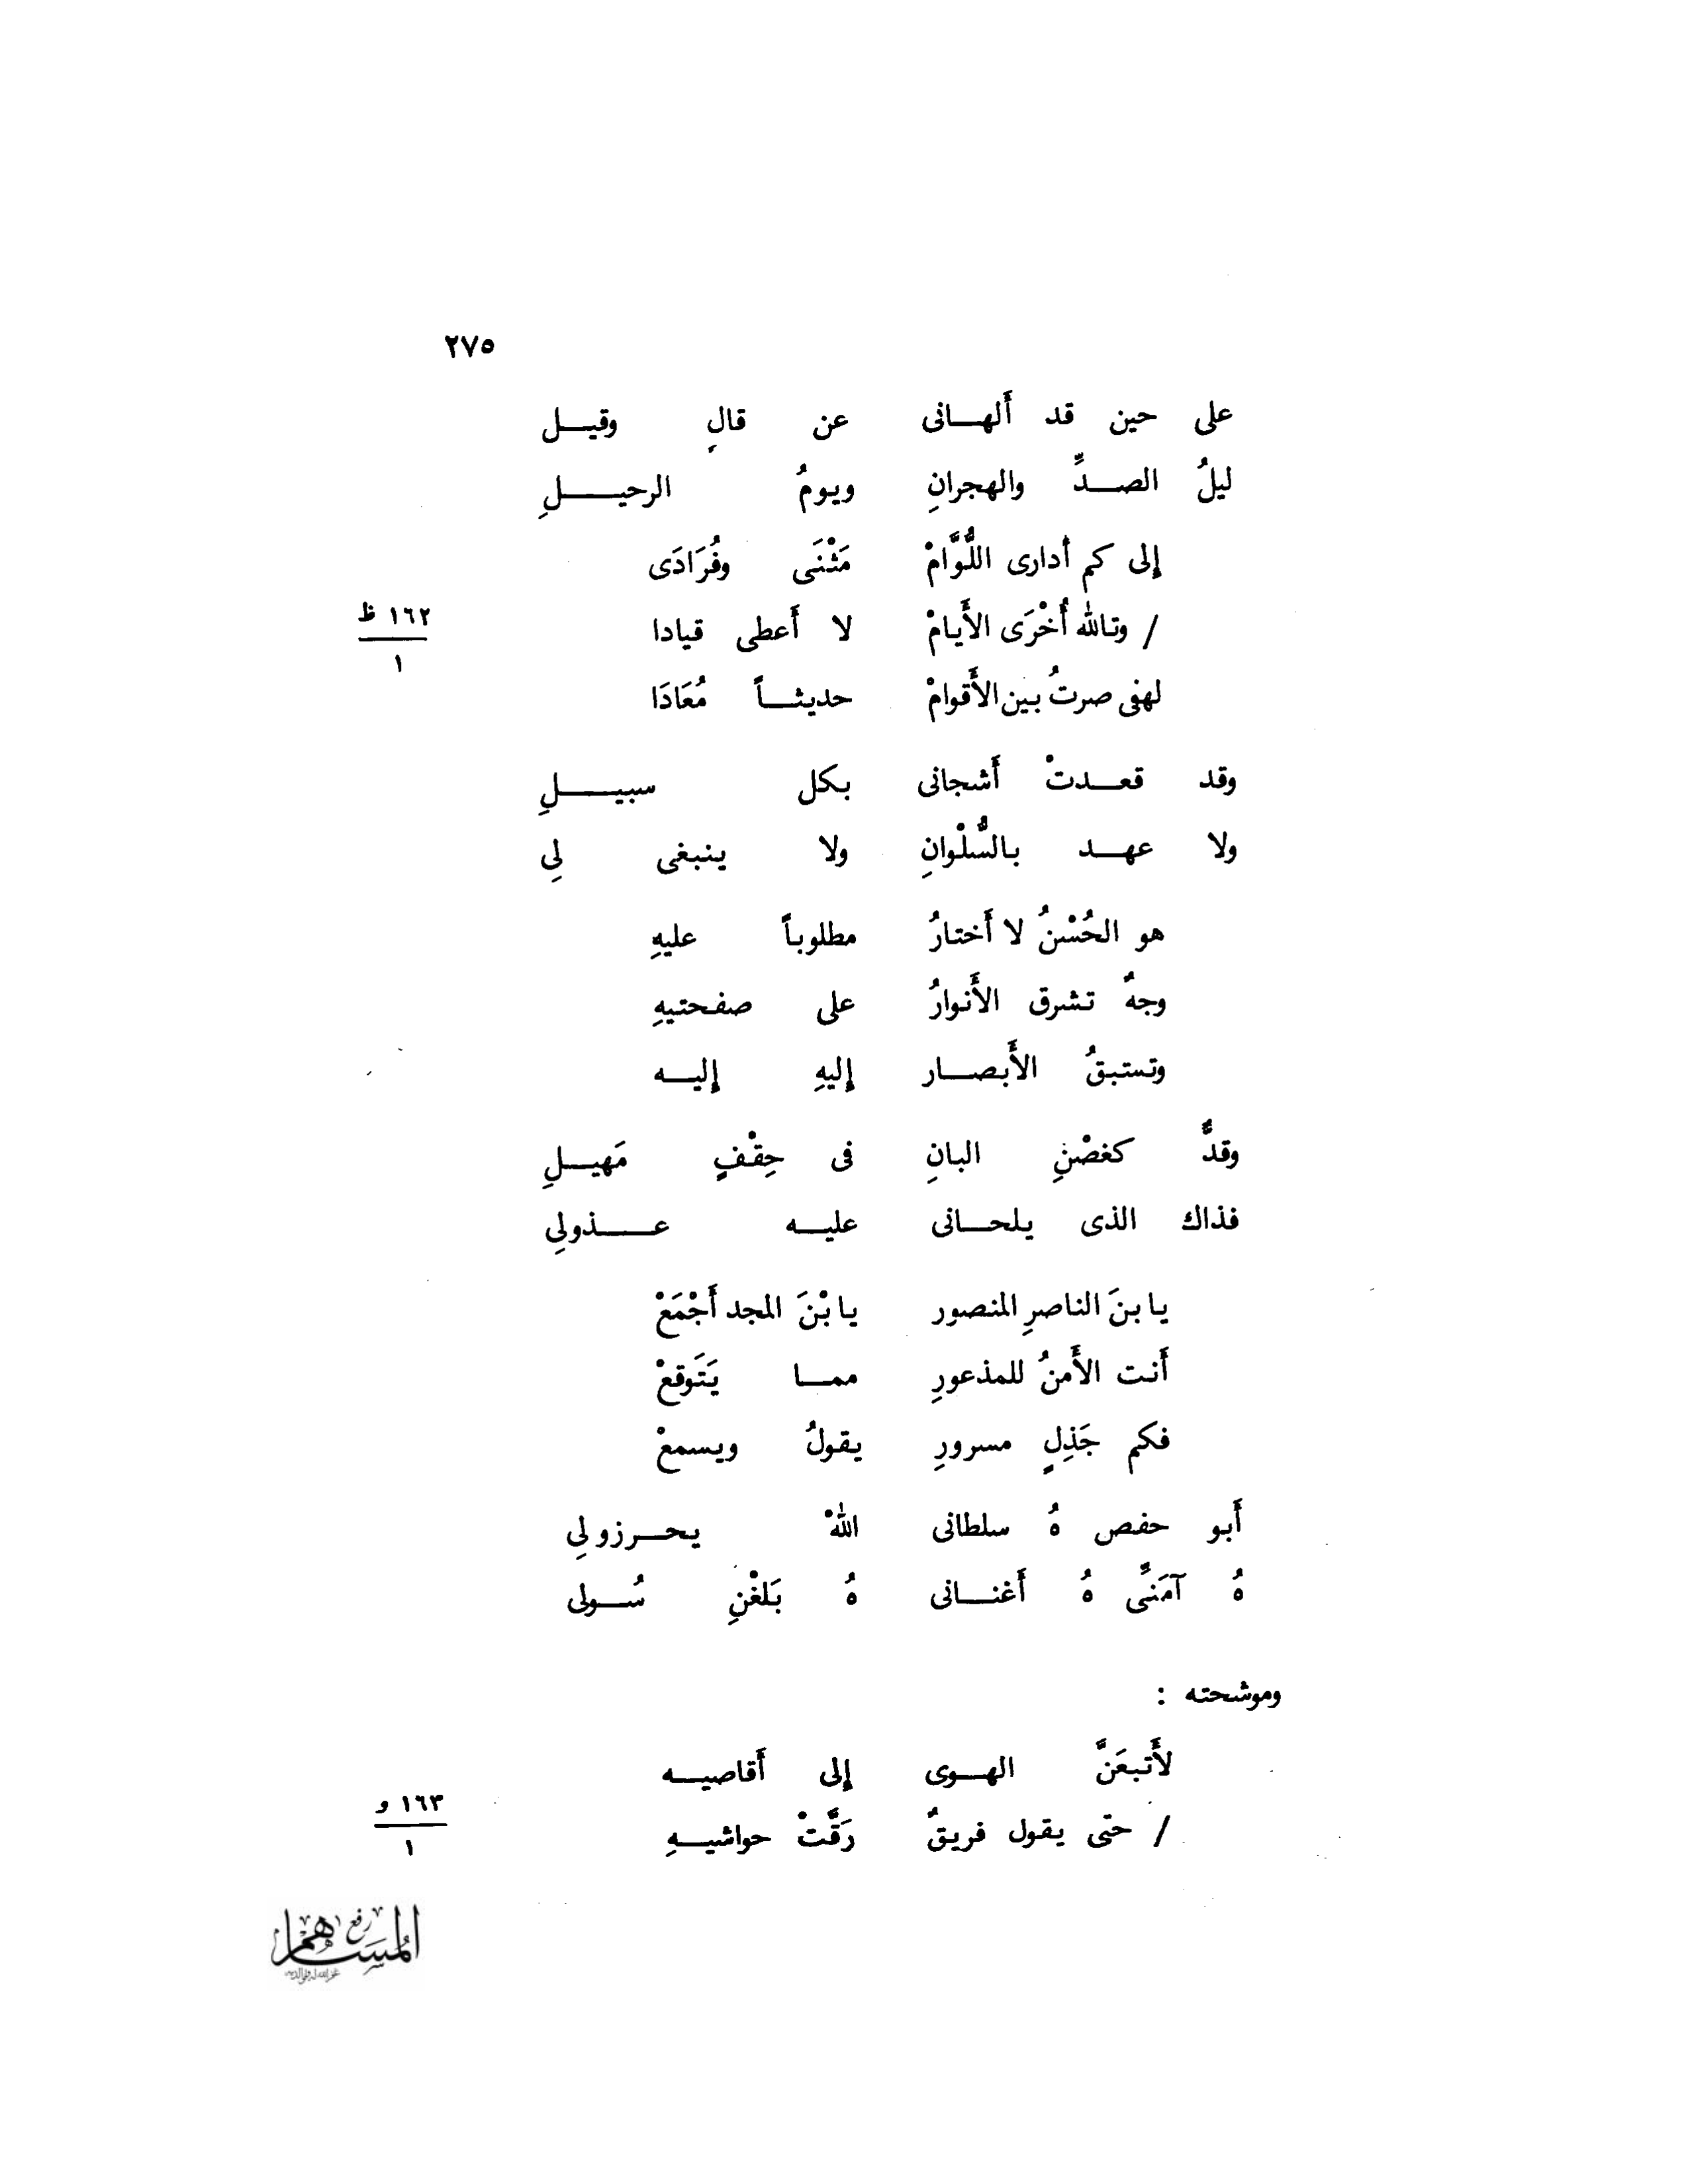 ٢٧٥
على حين قد ألهانى عن قالٍ وقيل
ليلُ الصدِّ والهجرانِ ويومُ الرحيلِ
إلى كم أدارى اللُّوَّامْ مَثْنَى وفُرَادَى
/ وتالله أُخْرَى الأَيامْ لا أَعطى قيادا
١٦٢ ظ
١
لهفى صرتُ بين الأَقوامْ حديثاً مُعَادَا
وقد قعدتْ أَشجانى بكل سبيلِ
ولا عهد بالسُّلْوانِ ولا ينبغى لِى
هو الحُسْنُ لا أَختارُ مطلوباً عليهِ
وجهٌ تشرق الأَنوارُ على صفحتيهِ
وتستبقُ الأَبصار إليهِ إليه
وقدٌّ كغصْنِ البانِ فى حِقْفٍ مَهيلِ
فذاك الذى يلحانى عليه عذولِى
يا بنَ الناصرِ المنصور يا بْنَ المجد أَجْمَعْ
أَنت الأَمنُ للمذعورِ مما يَتَوقعْ
فكم جَذِلٍ مسرورِ يقولُ ويسمعْ
أَبو حفص هُ سلطانى اللهْ يحرزو لِى
هُ آمَنِّى هُ أَغنانى هُ بَلغْنِ سُولى
وموشحته :
لأَتبعَنَّ الهوى إلى أَقاصيه
/ حتى يقول فريقٌ رَقَّتْ حواشيهِ
١٦٣ و
١
رفع
المساهم
غفر الله له ولوالديه